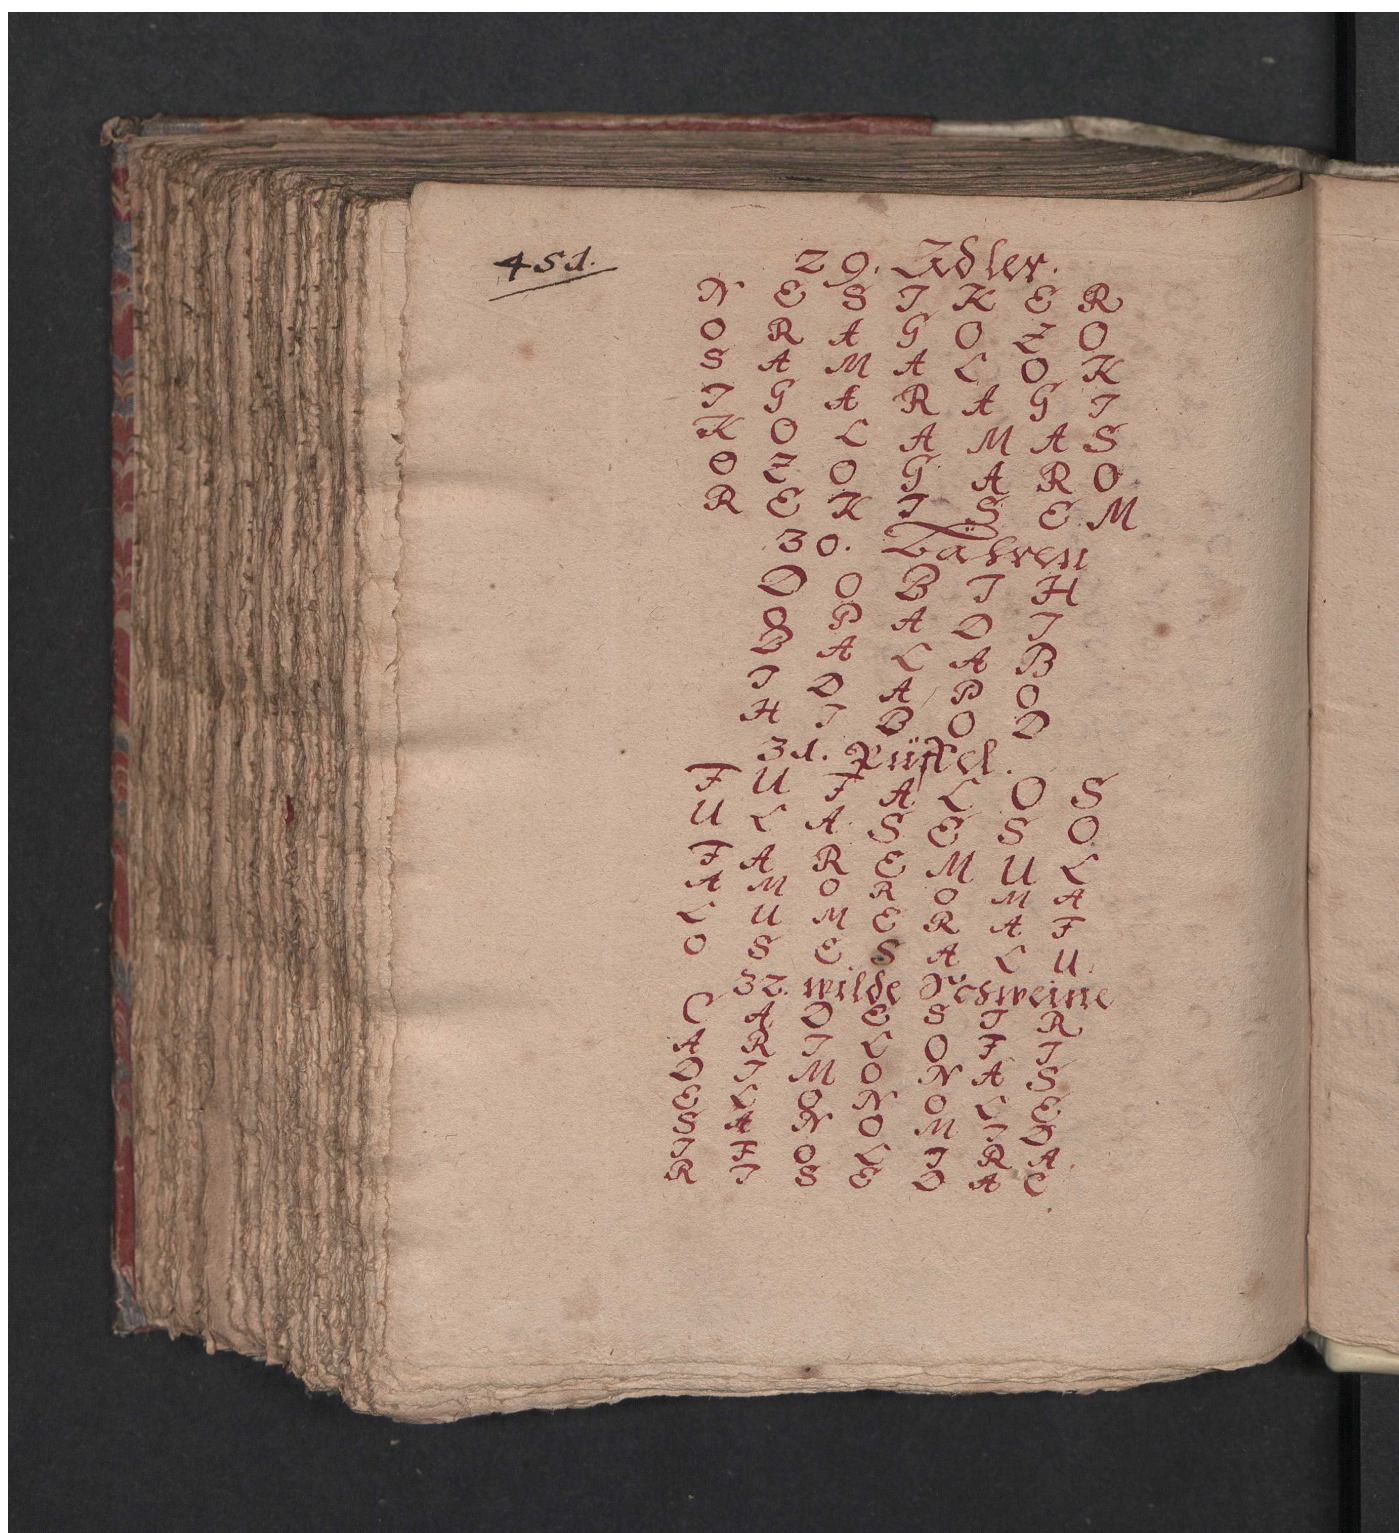 451.
29. Adler.
N E S I K E R
O R A G O Z O
S A M A L O K
I G A R A G I
K O L A M A S
O Z O G A R O
R E K I S E M
30. Bähren
D O B I H
O P A D I
B A L A B
I D A P O
H I B O D
31. Püffel.
F U F A L O S
U L A S E S O
F A R E M U L
A M O R O M A
L U M E R A F
O S E S A L U
32. wilde Schweine
C A D E S I R
A R I L O F I
D I M O N A S
E L O N O L E
S A N O M I D
I F O L I R A
R I S E D A C